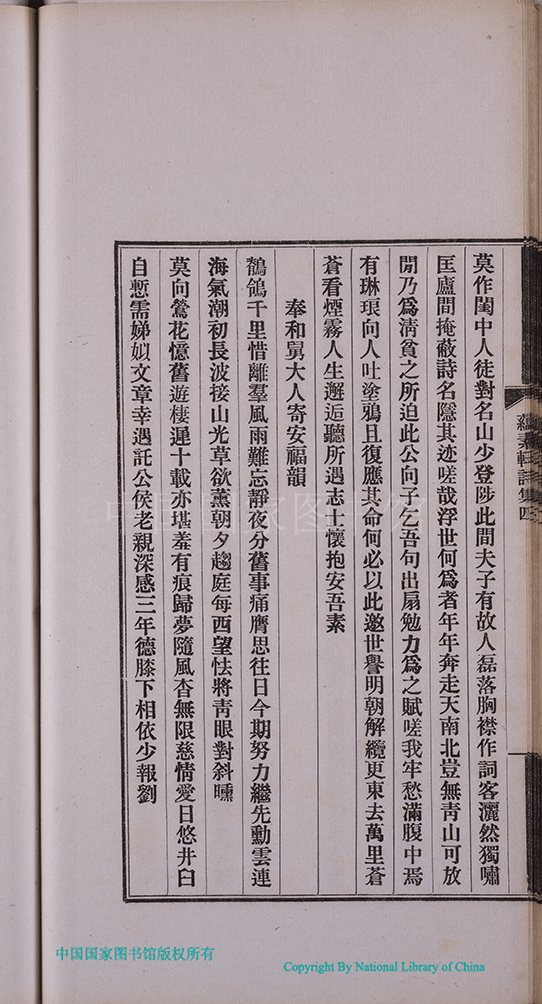 莫作閨中人徒對名山少登陟此間夫子有故人磊落胸襟作詞客灑然獨嘯
匡廬間掩蔽詩名隱其迹嗟哉浮世何爲者年年奔走天南北豈無靑山可放
閒乃爲清貧之所迫此公向子乞吾句出扇勉力爲之賦嗟我牢愁滿腹中焉
有琳琅向人吐塗鴉且復應其命何必以此邀世譽明朝解纜更東去萬里蒼
蒼看煙霧人生邂逅聽所遇志士懷抱安吾素
奉和舅大人寄安福韻
鶺鴒千里惜離羣風雨難忘靜夜分舊事痛膺思往日今期努力繼先勳雲連
海氣潮初長波接山光草欲薰朝夕趨庭每西望怯將靑眼對斜曛
莫向鶯花憶舊遊棲遲十載亦堪羞有痕歸夢隨風杳無限慈情愛日悠井臼
自慙需娣姒文章幸遇託公侯老親深感三年德膝下相依少報劉
詩集四
中国国家图书馆
中国国家图书馆版权所有
Copyright By National Library of China